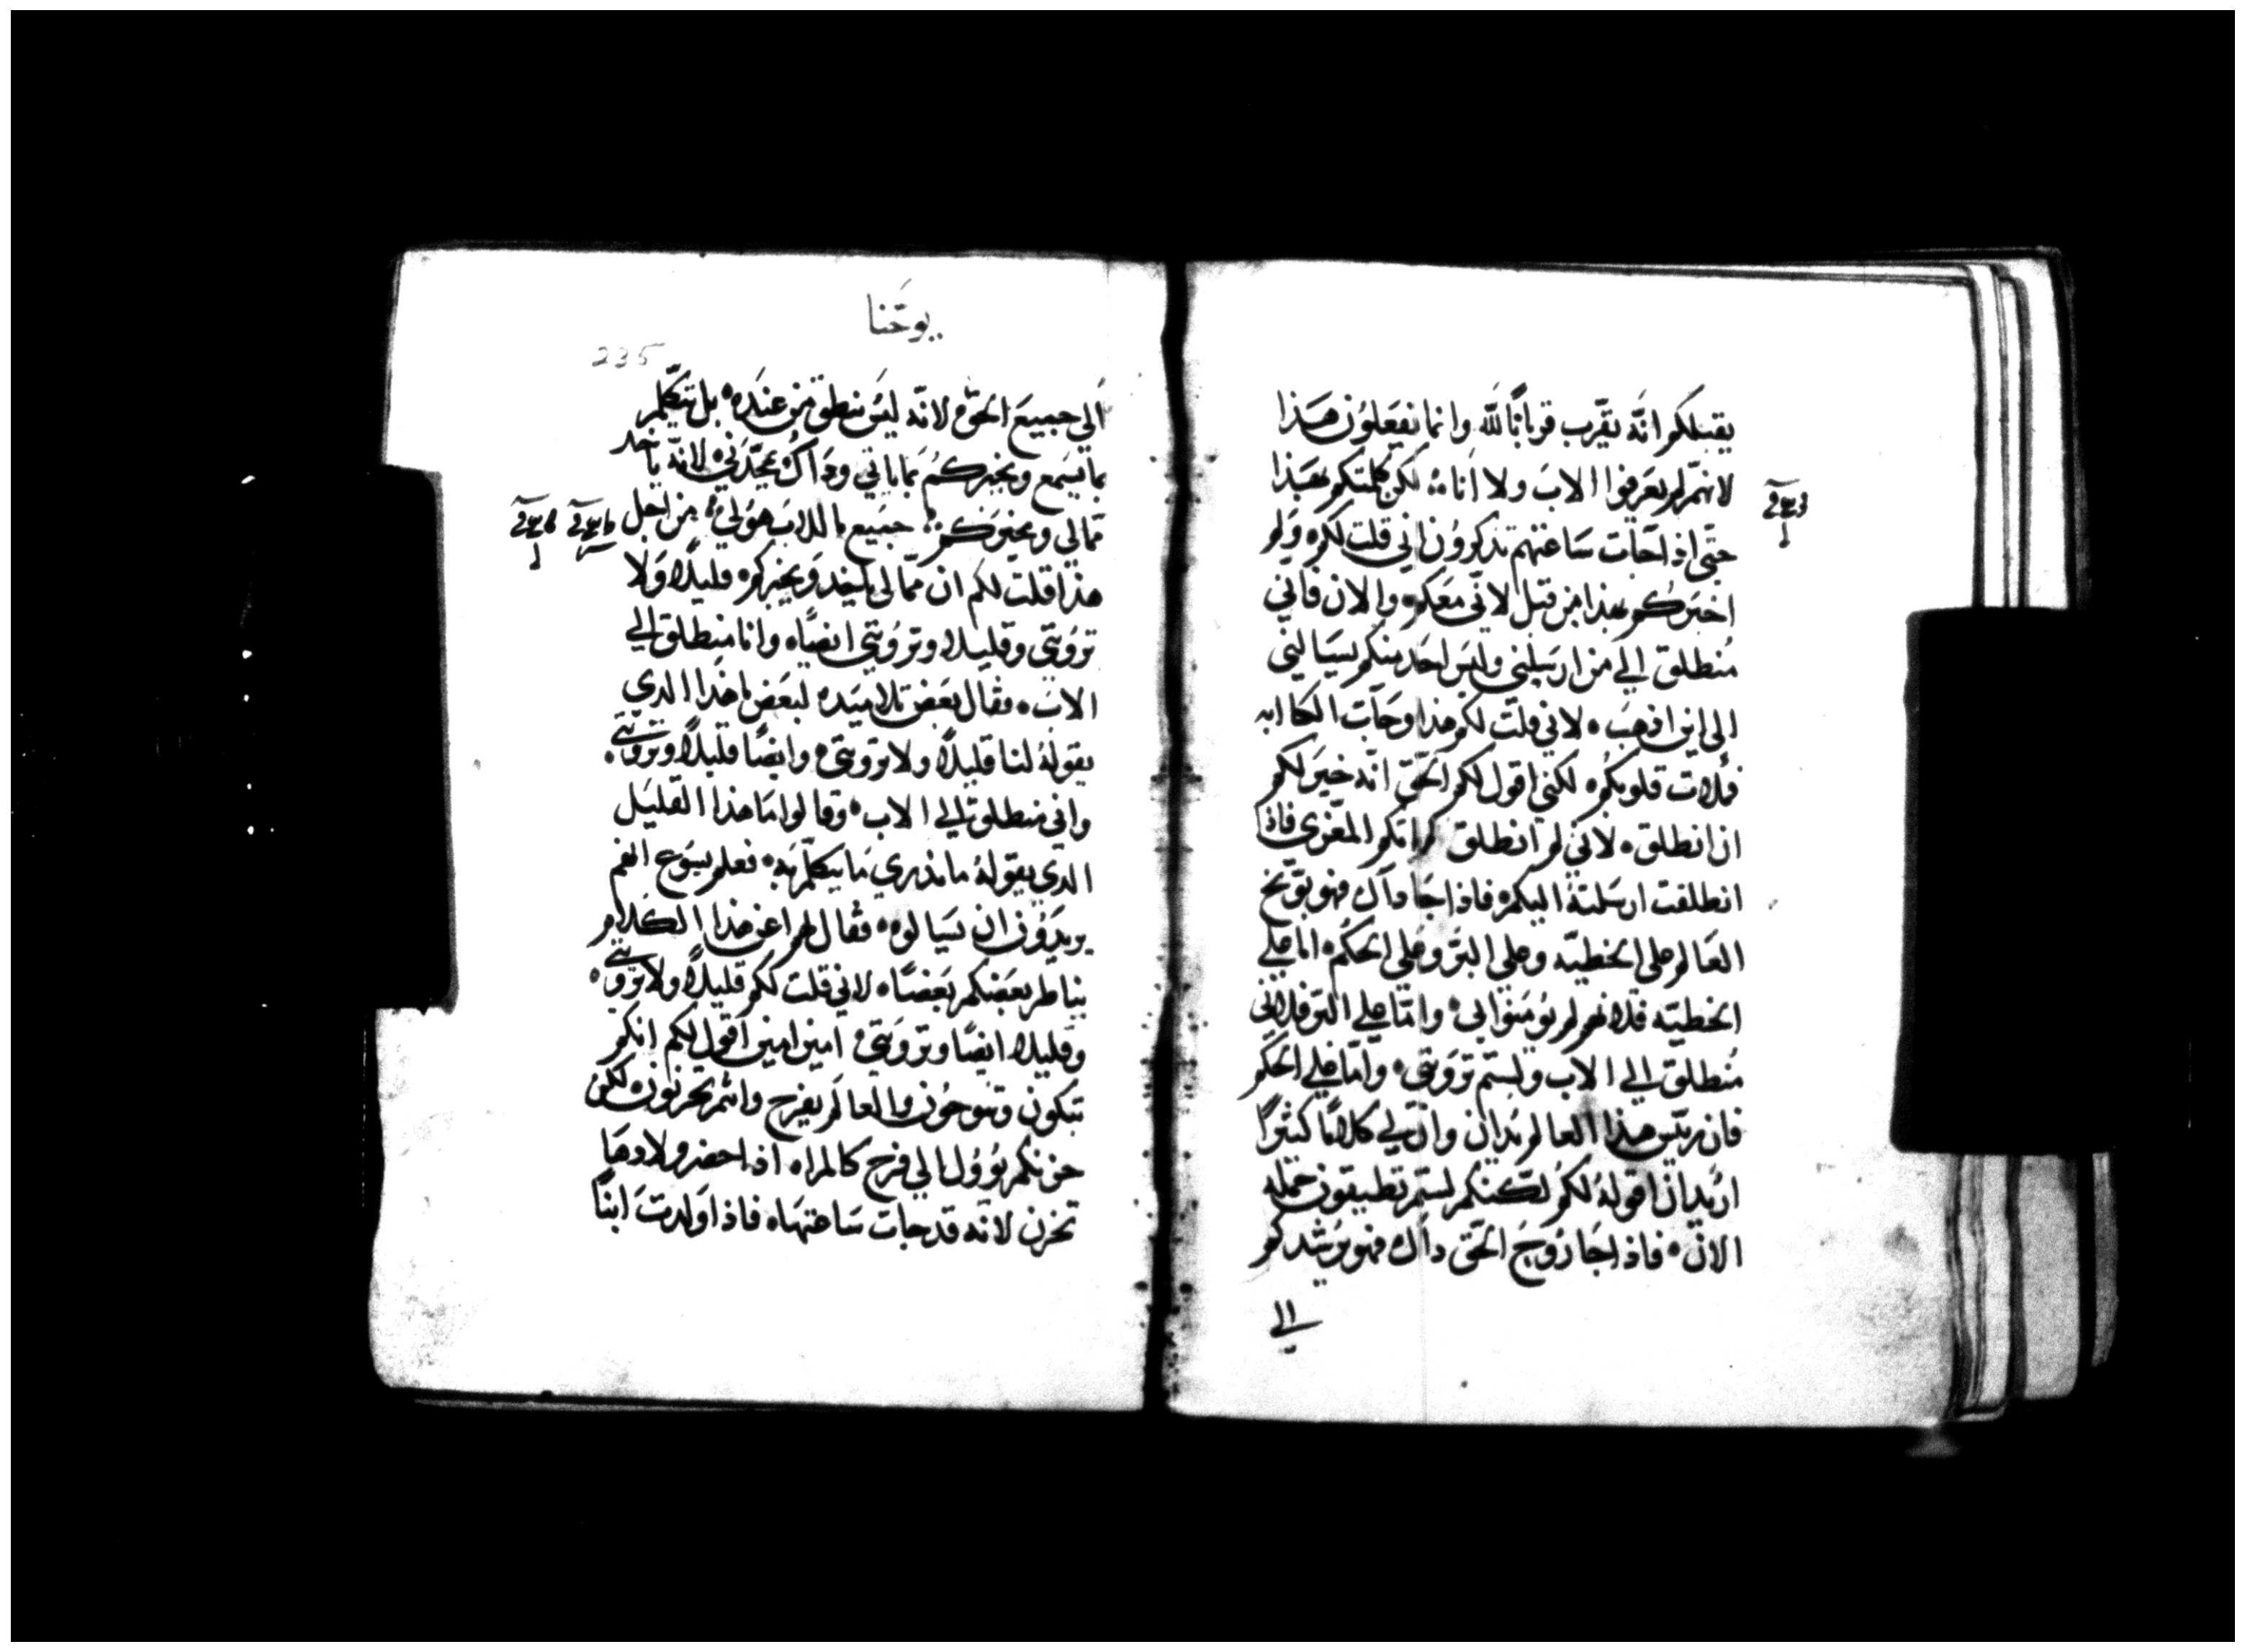 يقبلكم انه يقرب قربانًا لله وانما يفعلون هذا
لانهم لم يعرفوا الاب ولا انا لكن كلمتكم بهذا
حتى اذا جات ساعتهم تذكرون اني قلت لكم ولم
اخبركم بهذا من قبل لاني معكم والان فاني
منطلق الي من ارسلني وليس احد منكم يسالني
الى اين اذهب لاني قلت لكم هذا وجات الكابه
فملات قلوبكم لكني اقول لكم الحق انه خير لكم
ان انطلق لاني لم انطلق لم ياتكم المعزي فاذا
انطلقت ارسلته اليكم فاذا جا داك فهو يوبخ
العالم على الخطيه وعلي البر وعلي الحكم اما علي
الخطيه فلانهم لم يومنوا بي واما علي البر فلاني
منطلق الي الاب ولستم تروني واما علي الحكم
فان رييس هذا العالم يدان وان لي كلامًا كثيرًا
اريد ان اقوله لكم لكنكم لستم تطيقون حمله
الان فاذا جا روح الحق داك فهو يرشدكم
الي
يوحنا
235
الي جميع الحق لانه ليس ينطق من عنده بل يتكلم
بما يسمع ويخبركم بما ياتي وداك يمجدني لانه ياخد
مما لي ويخبركم جميع ما للاب هو لي من اجل
هذا قلت لكم ان مما لي ياخد ويخبركم قليلًا ولا
تروني وقليلا وتروني ايضًا وانا منطلق الي
الاب فقال بعض تلاميده لبعض ما هذا الدي
يقوله لنا قليلًا ولا تروني وايضًا قليلًا وتروني
واني منطلق الي الاب وقالوا ما هذا القليل
الدي يقوله ما ندري ما يتكلم به فعلم يسوع انهم
يريدون ان يسالوه فقال لهم اعن هذا الكلام
يناظر بعضكم بعضًا لاني قلت لكم قليلًا ولا تروني
وقليلا ايضًا وتروني امين امين اقول لكم انكم
تبكون وتنوحون والعالم يفرح وانتم تحزنون لكن
حزنكم يوول الي فرح كالمراه اذا حضر ولادها
تحزن لانه قد جات ساعتها فاذا ولدت ابنًا